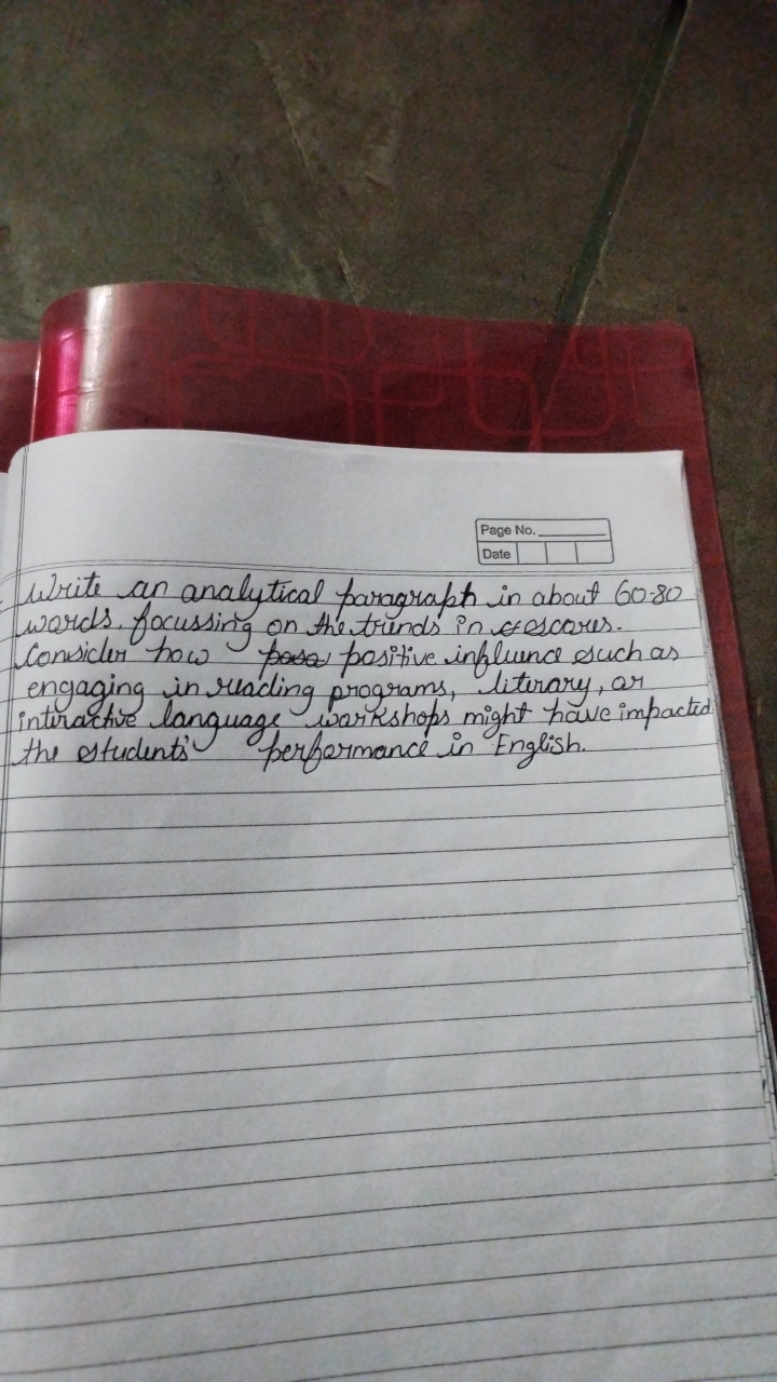 Page No.
Date
Write an analytical paragraph in about 60-80
words, focussing on the trends in scores.
Consider how positive influence such as
engaging in reading programs, literary, or
interactive language workshops might have impacted
the students' performance in English.